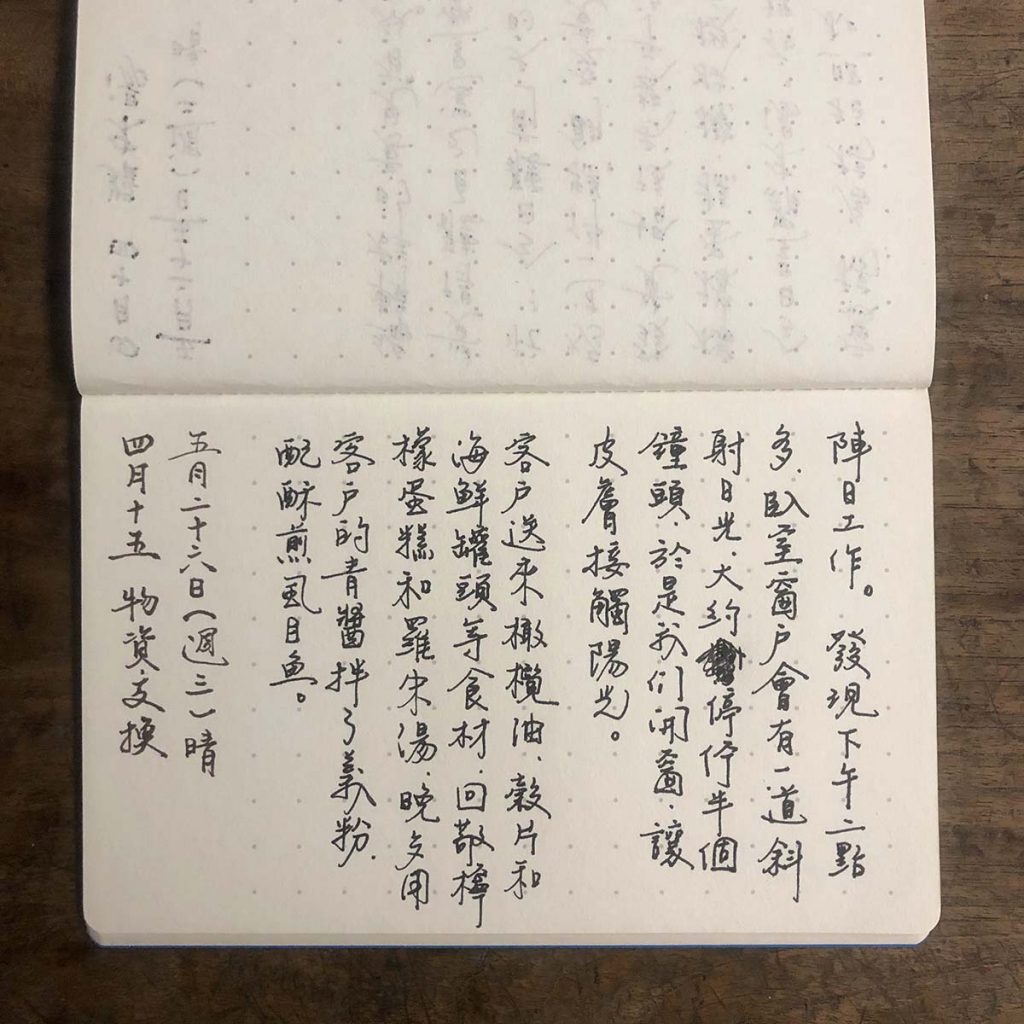 陣日工作。發現下午二點
多,臥室窗戶會有一道斜
射日光,大約停佇半個
鐘頭,於是我们開窗,讓
皮膚接觸陽光。
客戶送來橄欖油、穀片和
海鮮罐頭等食材,回敬檸
檬蛋糕和羅宋湯,晚夕用
客戶的青醬拌了義粉,
配酥煎虱目魚。
五月二十六日(週三)晴
四月十五 物資交換